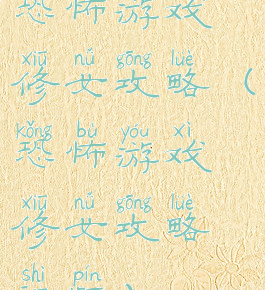 恐怖游戏
xiū nǚ gōng lüè
修女攻略（
kǒng bù yóu xì
恐怖游戏
xiū nǚ gōng lüè
修女攻略
shì pín